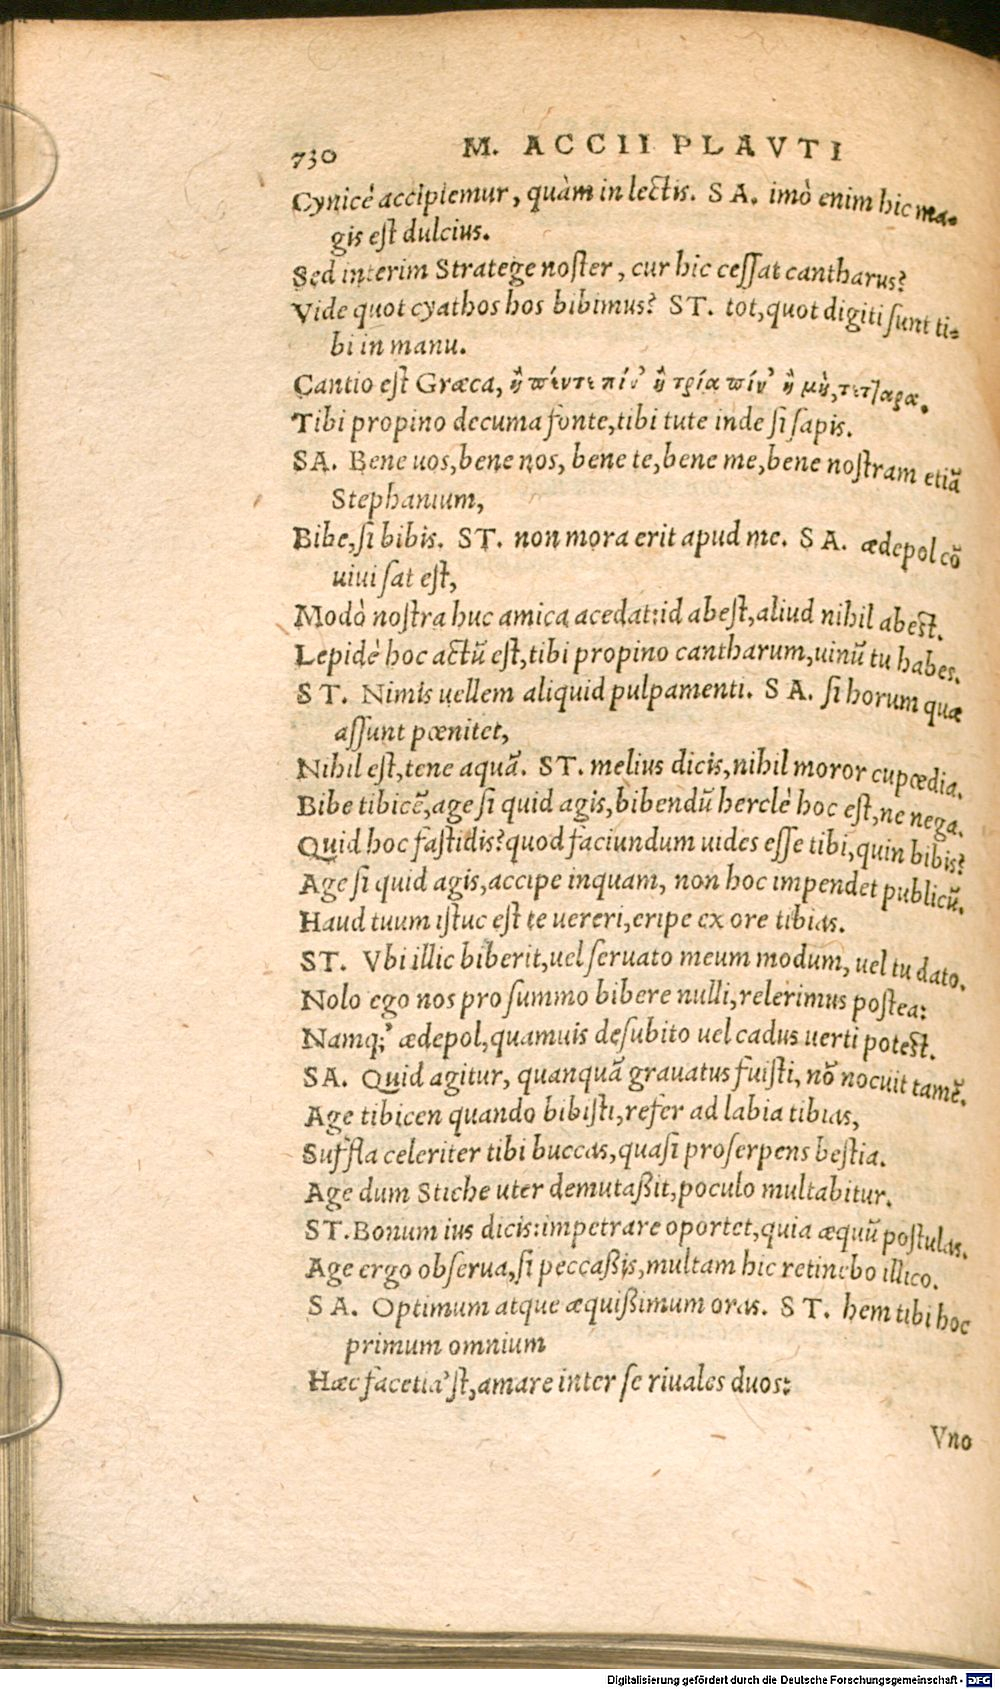 730 M. ACCII PLAVTI
Cynicè accipiemur, quàm in lectis. SA. imò enim hic ma-
gis est dulcius.
Sed interim Stratege noster, cur hic cessat cantharus?
Vide quot cyathos hos bibimus? ST. tot, quot digiti sunt ti-
bi in manu.
Cantio est Græca, ἢ πέντε πίν' ἢ τρία πίν' ἢ μὴ, τέτταρα.
Tibi propino decuma fonte, tibi tute inde si sapis.
SA. Bene uos, bene nos, bene te, bene me, bene nostram etiã
Stephanium,
Bibe, si bibis. ST. non mora erit apud me. SA. ædepol cõ
uiui sat est,
Modò nostra huc amica acedat: id abest, aliud nihil abest.
Lepidè hoc actũ est, tibi propino cantharum, uinũ tu habes.
ST. Nimis uellem aliquid pulpamenti. SA. si horum quæ
assunt pœnitet,
Nihil est, tene aquã. ST. melius dicis, nihil moror cupœdia.
Bibe tibicẽ, age si quid agis, bibendũ herclè hoc est, ne nega.
Quid hoc fastidis? quod faciundum uides esse tibi, quin bibis?
Age si quid agis, accipe inquam, non hoc impendet publicũ.
Haud tuum istuc est te uereri, eripe ex ore tibias.
ST. Vbi illic biberit, uel seruato meum modum, uel tu dato.
Nolo ego nos pro summo bibere nulli, relerimus postea:
Namq;' ædepol, quamuis desubito uel cadus uerti potest.
SA. Quid agitur, quanquã grauatus fuisti, nõ nocuit tamẽ.
Age tibicen quando bibisti, refer ad labia tibias,
Suffla celeriter tibi buccas, quasi proserpens bestia.
Age dum Stiche uter demutaßit, poculo multabitur.
ST. Bonum ius dicis: impetrare oportet, quia æquũ postulas.
Age ergo obserua, si peccaßis, multam hic retinebo illico.
SA. Optimum atque æquißimum oras. ST. hem tibi hoc
primum omnium
Hæc facetia'st, amare inter se riuales duos:
Vno
Digitalisierung gefördert durch die Deutsche Forschungsgemeinschaft - DFG